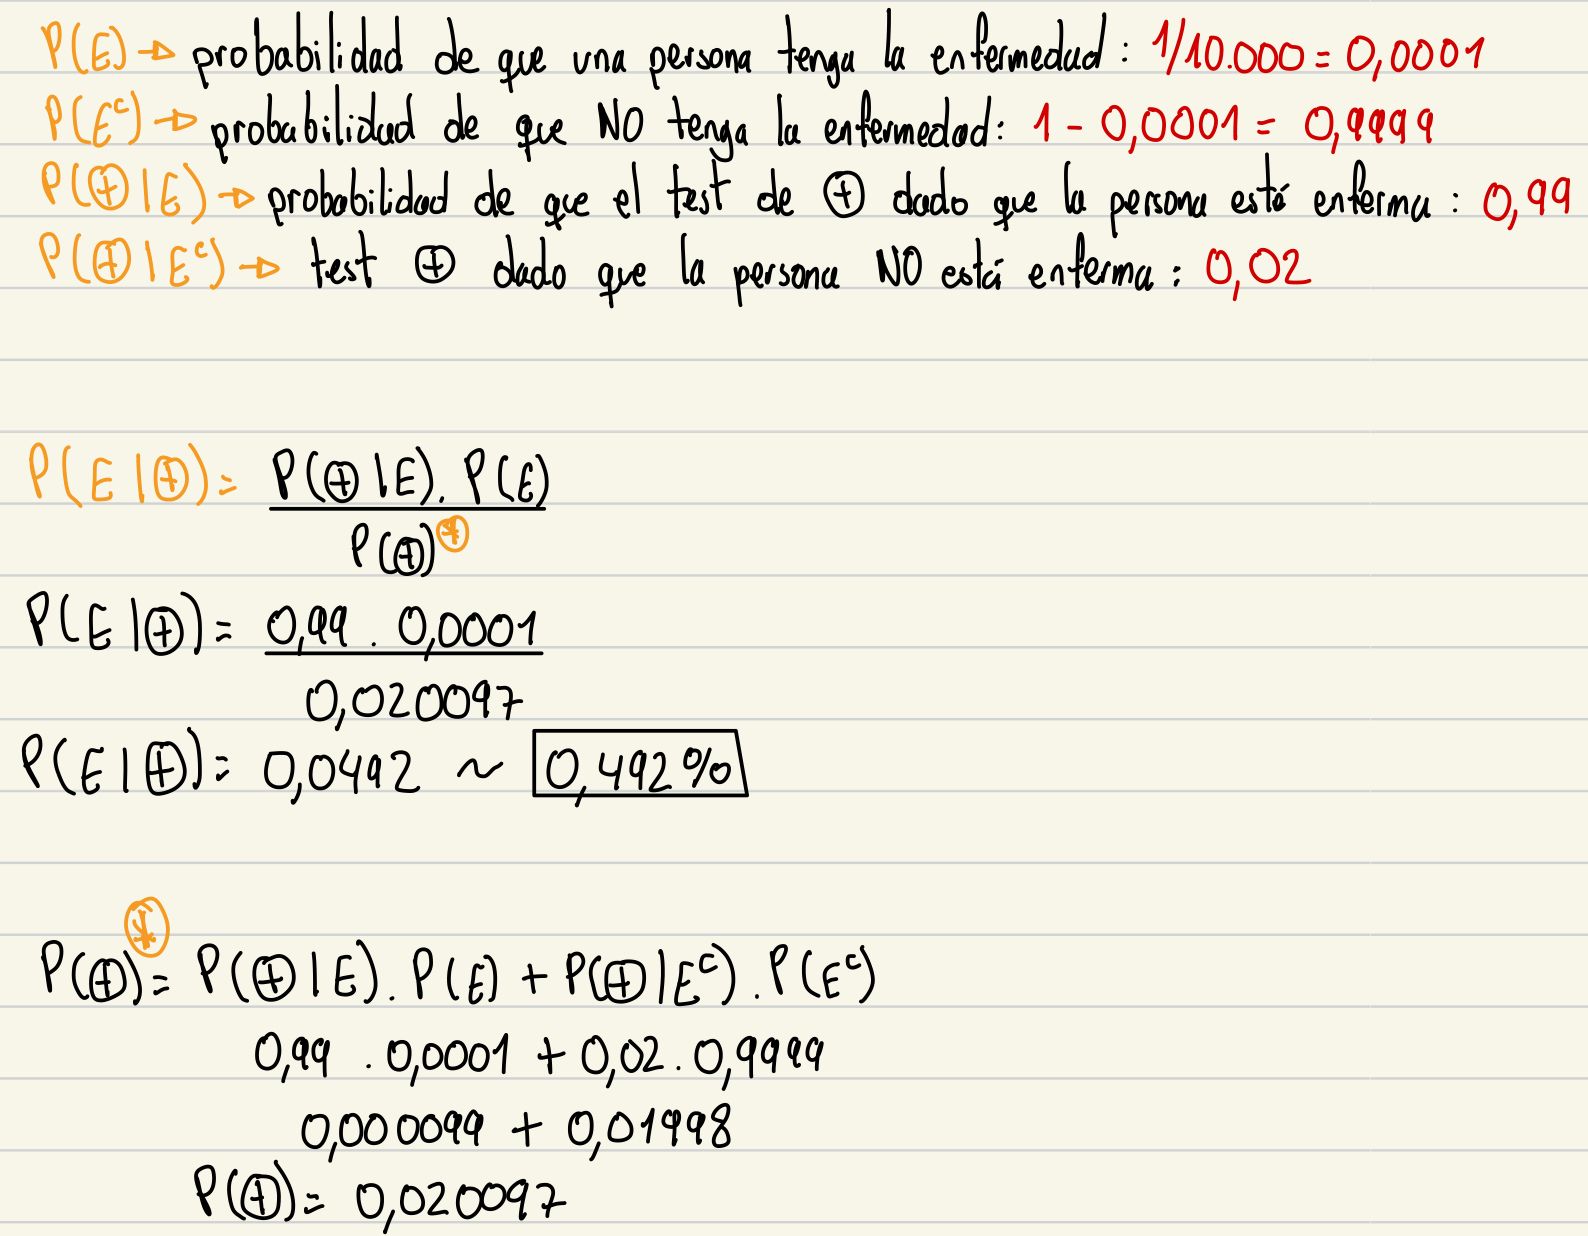 P(E) → probabilidad de que una persona tenga la enfermedad: 1/10.000 = 0,0001
P(Eᶜ) → probabilidad de que NO tenga la enfermedad: 1 - 0,0001 = 0,9999
P(⊕|E) → probabilidad de que el test de ⊕ dado que la persona está enferma: 0,99
P(⊕|Eᶜ) → test ⊕ dado que la persona NO está enferma: 0,02
P(E|⊕) = P(⊕|E). P(E)
P(⊕)*
P(E|⊕) = 0,99 . 0,0001
0,020097
P(E|⊕) = 0,0492 ~ 0,492%
*
P(⊕) = P(⊕|E). P(E) + P(⊕|Eᶜ). P(Eᶜ)
0,99 . 0,0001 + 0,02 . 0,9999
0,000099 + 0,01998
P(⊕) = 0,020097